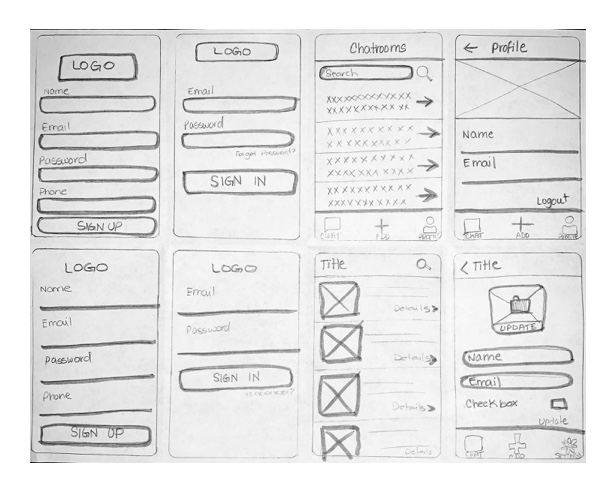 LOGO
Name
Email
Password
Phone
SIGN UP
LOGO
Email
Password
Forgot Password?
SIGN IN
Chatrooms
Search
XXXXXXXXXXXX
XXXXXXXXXX
XXXXXXXXXX
XXXXXXXXXX
XXXXXXXXXX
XXXXXXXXXX
XXXXXXXXXX
XXXXXXXXXX
CHAT ADD PROFILE
← Profile
Name
Email
Logout
CHAT ADD PROFILE
LOGO
Name
Email
Password
Phone
SIGN UP
LOGO
Email
Password
SIGN IN
Title
Details >
Details >
Details >
Details
< Title
UPDATE
Name
Email
Checkbox
Update
CHAT ADD SETTINGS